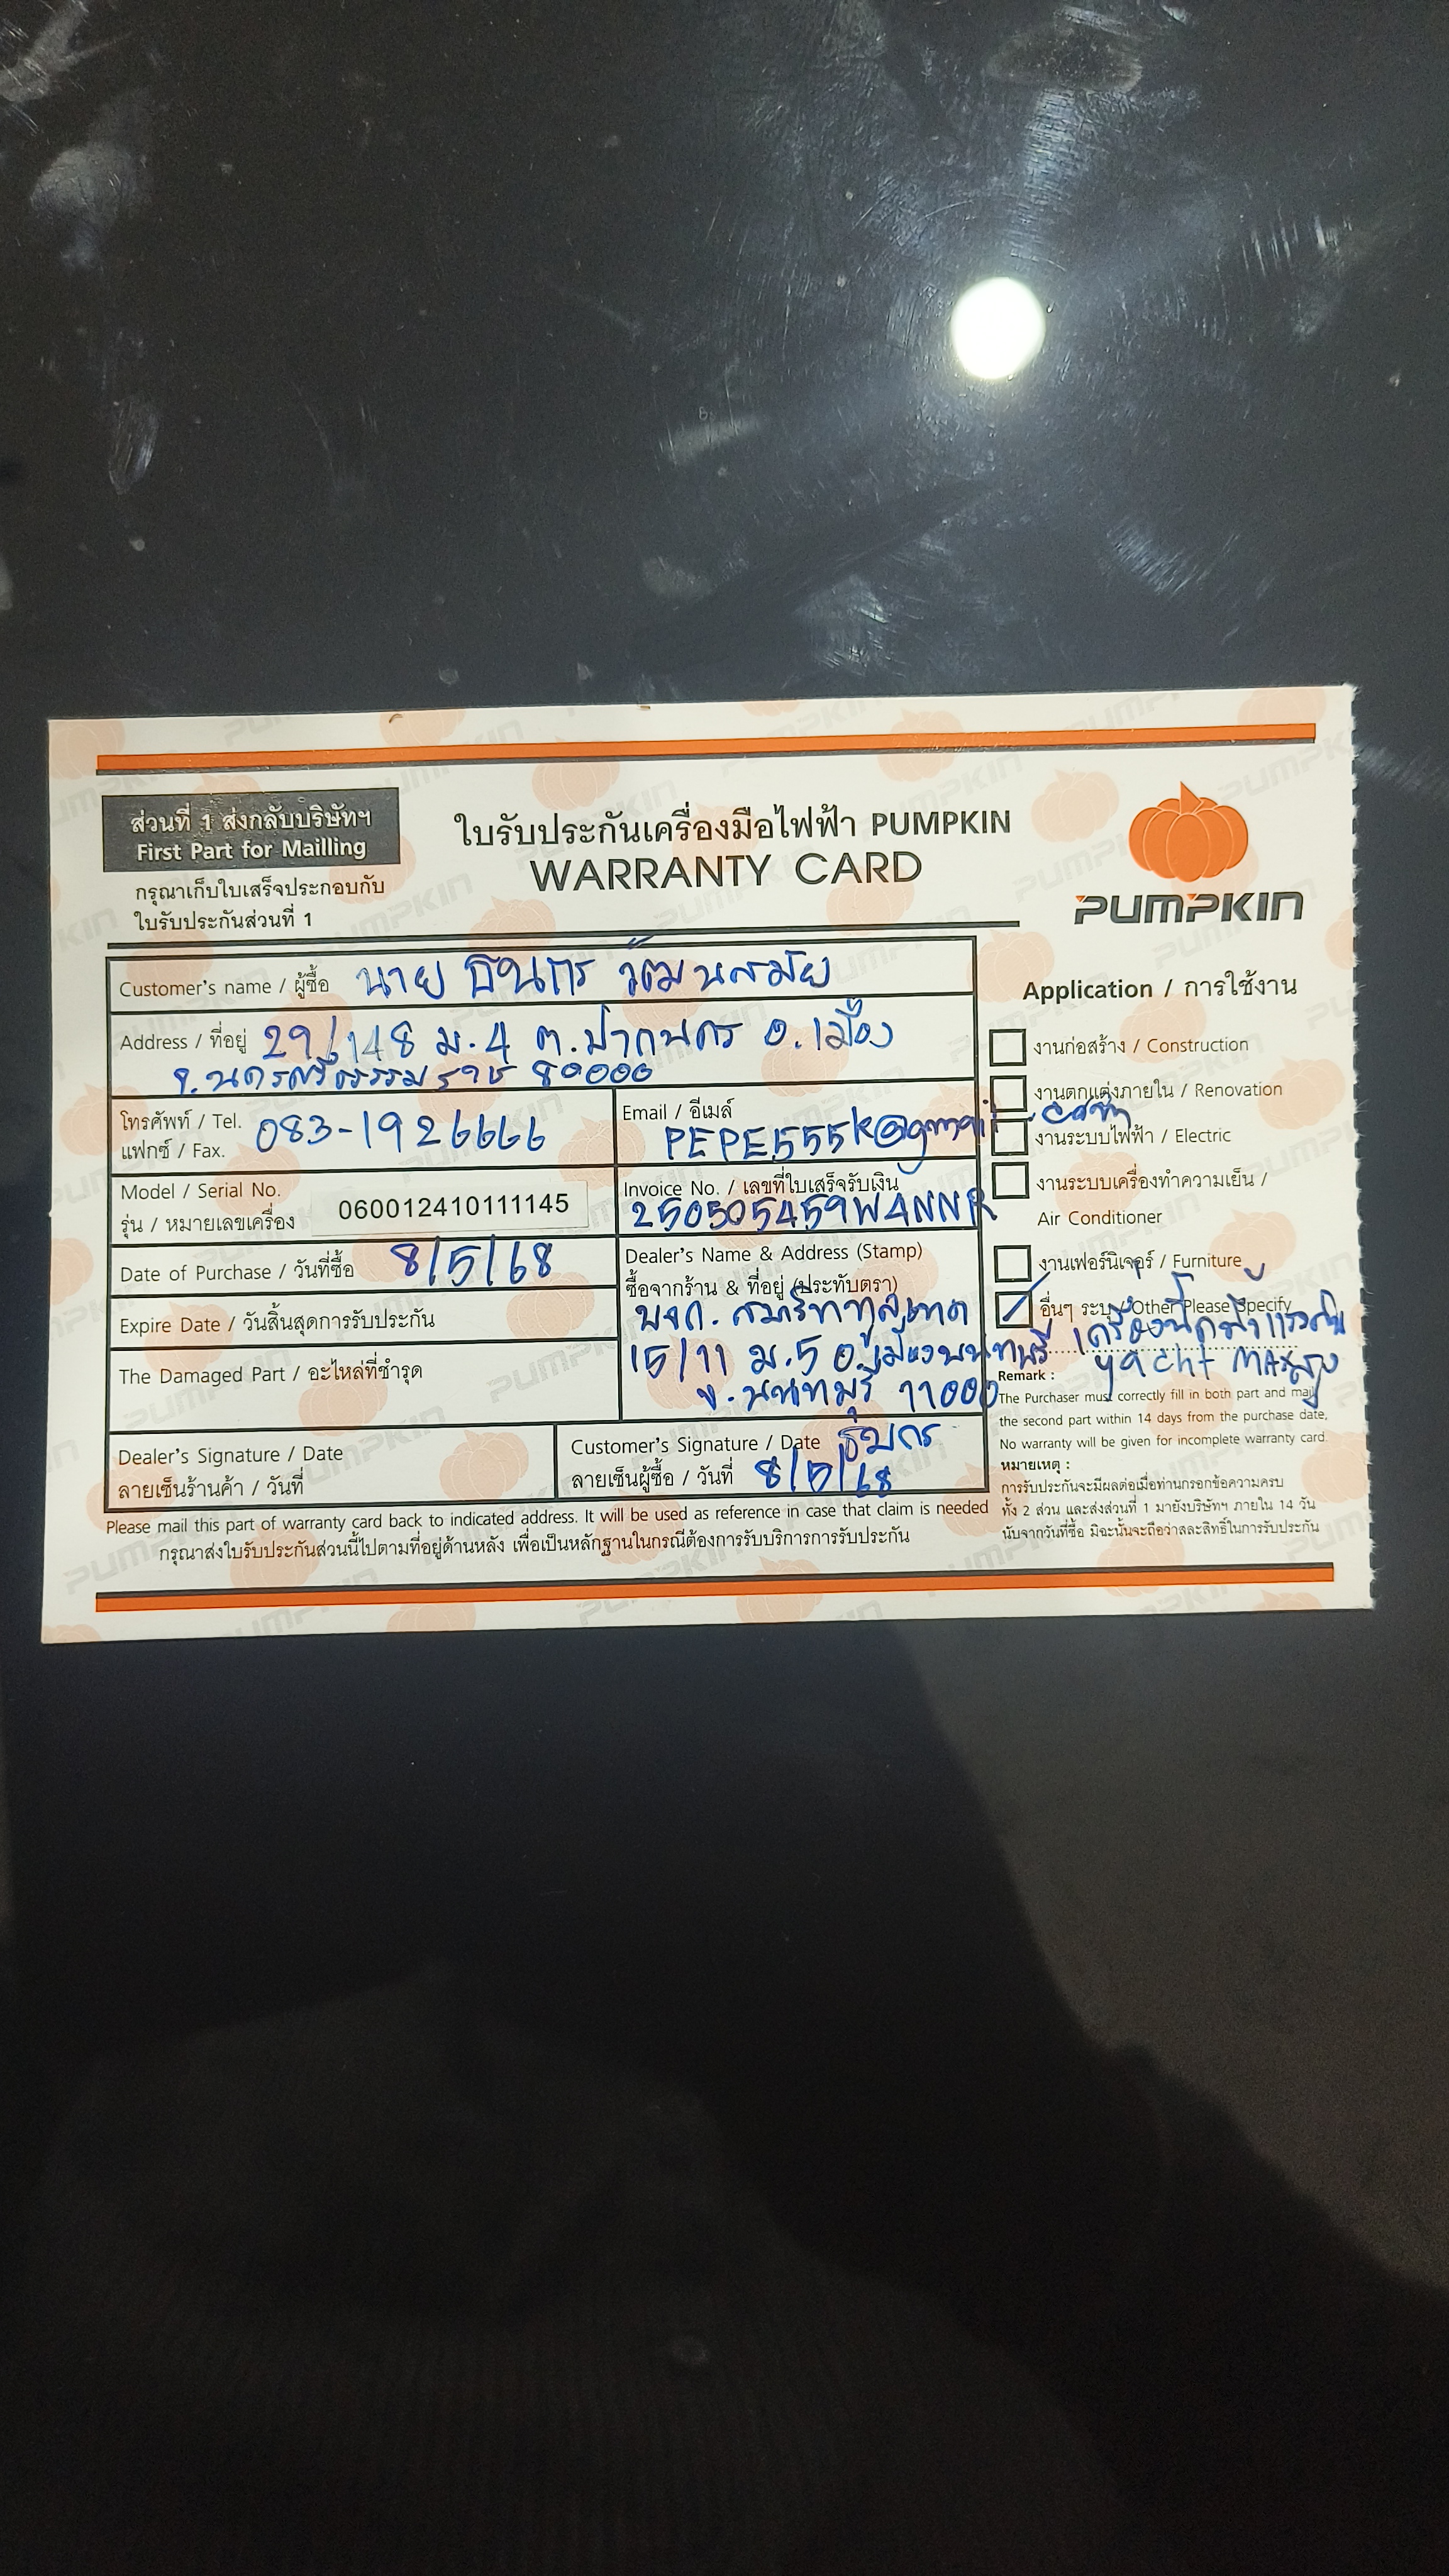 ส่วนที่ 1 ส่งกลับบริษัทฯ
First Part for Mailling
กรุณาเก็บใบเสร็จประกอบกับ
ใบรับประกันส่วนที่ 1
ใบรับประกันเครื่องมือไฟฟ้า PUMPKIN
WARRANTY CARD
PUMPKIN
Customer's name / ผู้ซื้อ นาย ธินกร วัฒนสมัย
Address / ที่อยู่ 29/148 ม.4 ต.ปากนคร อ.เมือง
จ.นครศรีธรรมราช 80000
โทรศัพท์ / Tel. 083-1926666
แฟกซ์ / Fax.
Email / อีเมล์
PEPE555K@gmail.com
Model / Serial No.
รุ่น / หมายเลขเครื่อง 060012410111145
Invoice No. / เลขที่ใบเสร็จรับเงิน
250505459WANNR
Date of Purchase / วันที่ซื้อ 8/5/68
Expire Date / วันสิ้นสุดการรับประกัน
The Damaged Part / อะไหล่ที่ชำรุด
Dealer's Name & Address (Stamp)
ซื้อจากร้าน & ที่อยู่ (ประทับตรา)
15/11 ม.5 อ.เมืองนนทบุรี
จ.นนทบุรี 11000
Dealer's Signature / Date
ลายเซ็นร้านค้า / วันที่
Customer's Signature / Date
ลายเซ็นผู้ซื้อ / วันที่ 8/5/68
Application / การใช้งาน
งานก่อสร้าง / Construction
งานตกแต่งภายใน / Renovation
งานระบบไฟฟ้า / Electric
งานระบบเครื่องทำความเย็น /
Air Conditioner
งานเฟอร์นิเจอร์ / Furniture
อื่นๆ ระบุ / Other Please Specify
เครื่องฉีดน้ำแรงดัน
Remark :
The Purchaser must correctly fill in both part and mail
the second part within 14 days from the purchase date,
No warranty will be given for incomplete warranty card.
หมายเหตุ :
การรับประกันจะมีผลต่อเมื่อท่านกรอกข้อความครบ
ทั้ง 2 ส่วน และส่งส่วนที่ 1 มายังบริษัทฯ ภายใน 14 วัน
นับจากวันที่ซื้อ มิฉะนั้นจะถือว่าสละสิทธิ์ในการรับประกัน
Please mail this part of warranty card back to indicated address. It will be used as reference in case that claim is needed
กรุณาส่งใบรับประกันส่วนนี้ไปตามที่อยู่ด้านหลัง เพื่อเป็นหลักฐานในกรณีต้องการรับบริการการรับประกัน